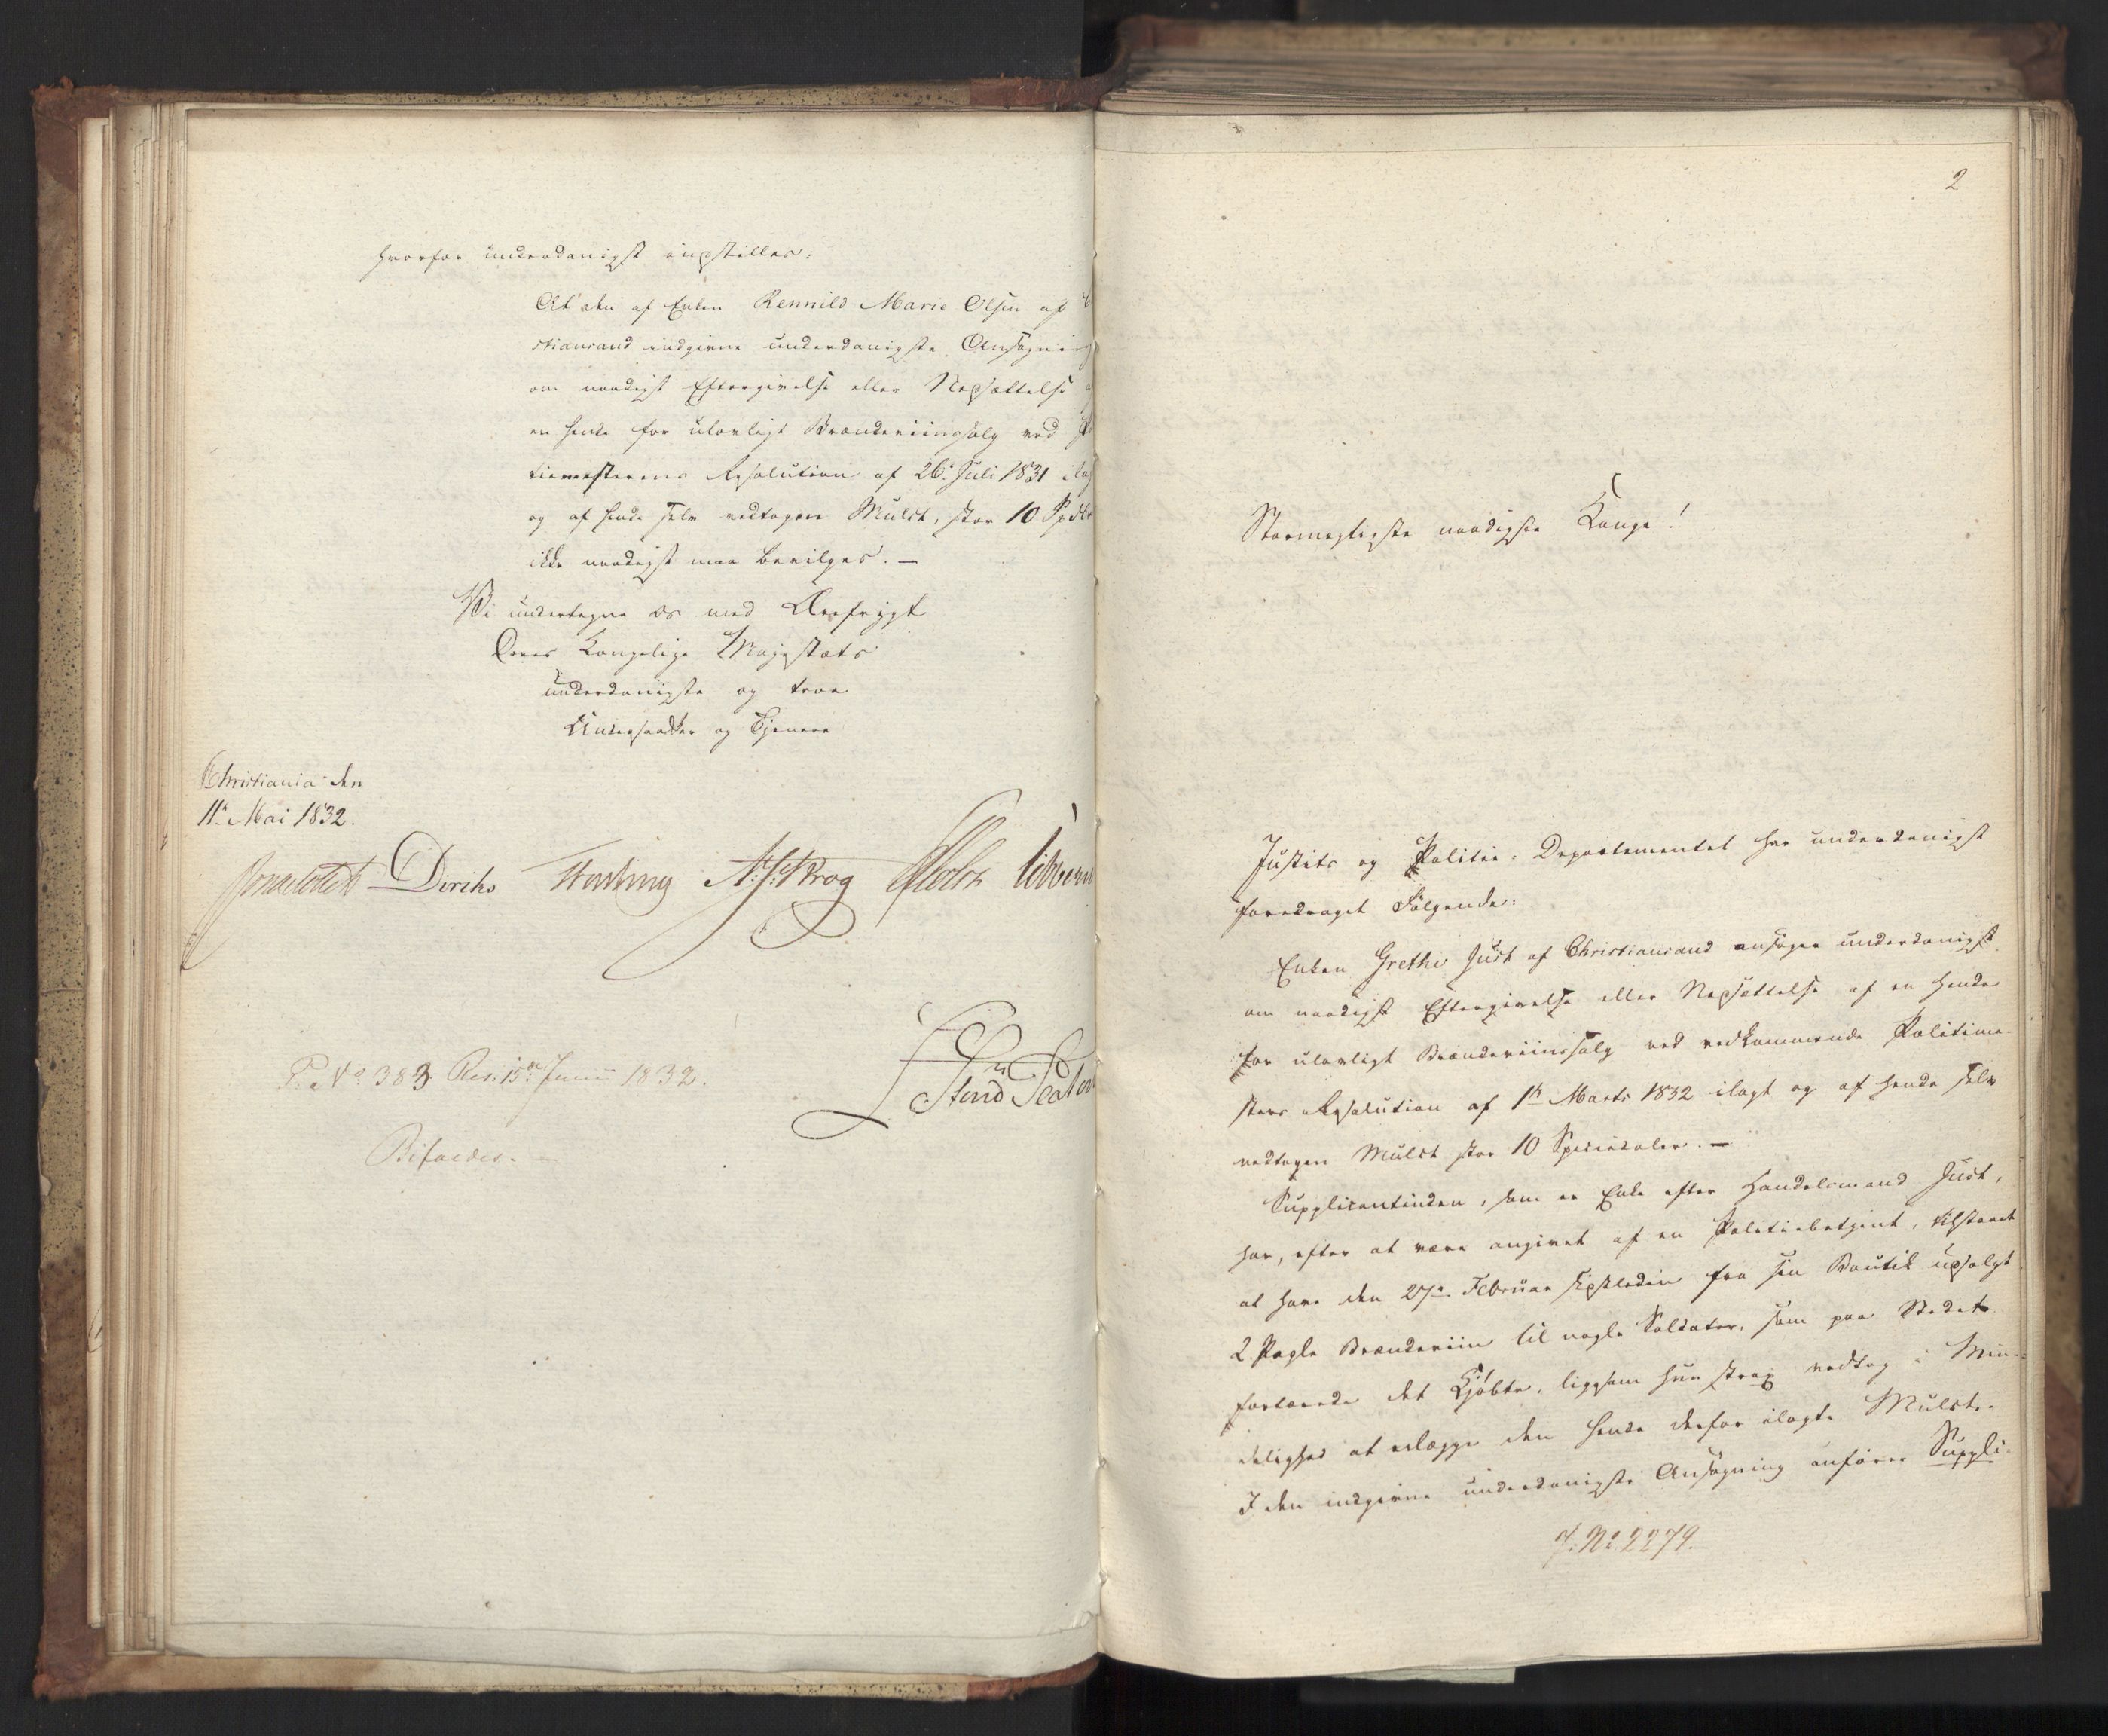 hvorfor underdanigst indstilles:
At den af Enken Rennild Marie Olsen af
stiansand indgivne underdanigste Ansøgning
om naadigst Eftergivelse eller Nedsættelse
en hende for ulovligt Brændeviinssalg ved
tiemesterens Resolution af 26. Juli 1831
og af hende selv vedtagen Mulct, stor 10 Spdlr
ikke naadigst maa bevilges. —
Vi undertegne os med Ærefrygt
Deres Kongelige Majestæts
underdanigste og troe
Undersaatter og Tjenere
Christiania den
11te Mai 1832.
Diriks A: F: Krog
P. No. 383 Res. 15de Junii 1832.
Bifaldes. —
2
Stormægtigste naadigste Konge!
Justits og Politie-Departementet har underdanigst
foredraget Følgende:
Enken Grethe Just af Christiansand ansøger underdanigst
om naadigst Eftergivelse eller Nedsættelse af en hende
for ulovligt Brændeviinssalg ved vedkommende Politime-
sters Resolution af 1ste Marts 1832 ilagt og af hende selv
vedtagen Mulct stor 10 Speciedaler. —
Supplicantinden, som er Enke efter Handelsmand Just,
har, efter at være angivet af en Politiebetjent, tilstaaet
at have den 27de Februar sidstleden fra sin Boutik udsolgt
2 Pægle Brændeviin til nogle Soldater, som paa Stedet
fortærede det Kjøbte, ligesom hun strax vedtog i Min-
delighed at erlægge den hende derfor ilagte Mulct.
I den indgivne underdanigste Ansøgning anfører Suppli-
J. No. 2279.